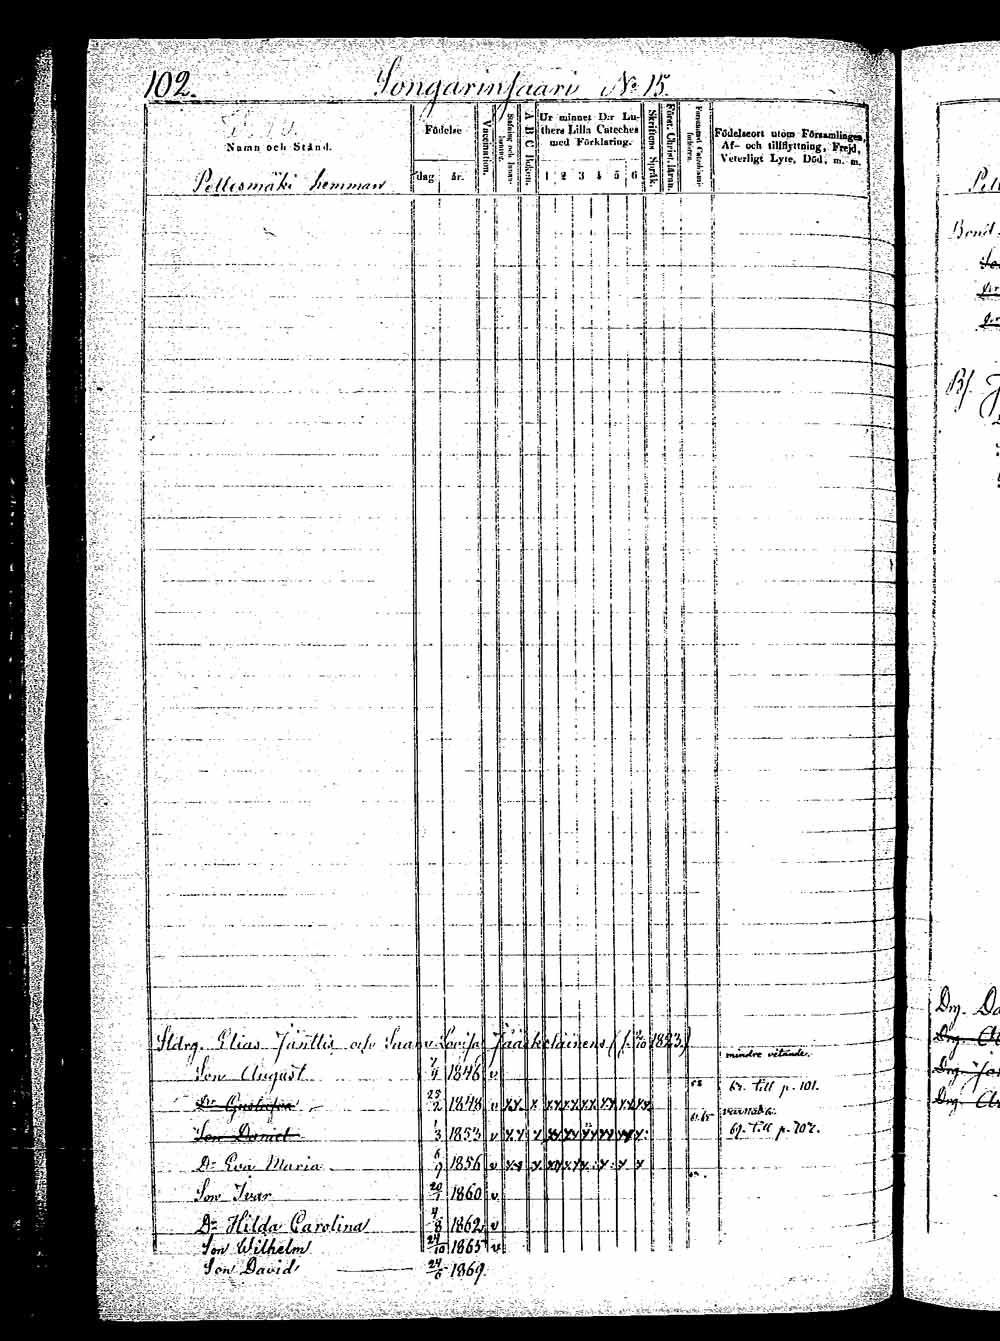 102. Songarinsaari No 15.
Namn och Stånd.
Födelse
dag
år.
Vaccination.
A B C Boken.
Ur minnet D:r Lu-
thers Lilla Cateches
med Förklaring.
1 2 3 4 5 6
Skriftens Språk.
Först. Christ. läran.
Födelseort utom Församlingen,
Af- och tillflyttning, Frejd,
Veterligt Lyte, Död, m. m.
Pellesmäki hemman
Stdrg. Elias Jänttis och Lovisa Jääskeläinens (f. 2/10 1823)
mindre vetande.
Son August 7/4 1846 v
63. till p. 101.
Dr Gustafva 25/2 1848 v
Son Daniel 1/3 1853 v
69. till p. 702.
Dr Eva Maria 6/9 1856 v
Son Ivar 20/1 1860 v
Dr Hilda Carolina 4/8 1862 v
Son Wilhelm 24/10 1865 v
Son David 24/6 1869.